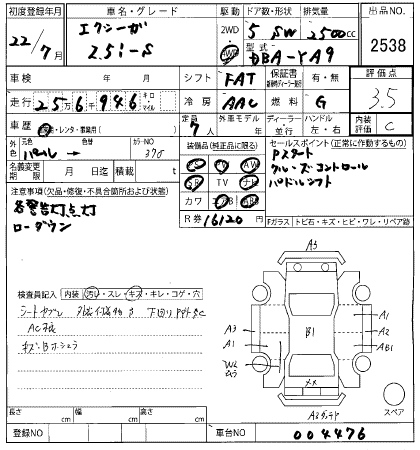 初度登録年月 車名・グレード 駆動 ドア数・形状 排気量 出品NO.
22/7月 エクシーガ 2WD 5 SW 2500cc
2.5i-S 4WD 型式 DBA-YA9 2538
車検 年 月 シフト FAT 保証書 有・無 評価点
走行 25万6千946 キロ マイル 冷房 AAC 燃料 G 3.5
車歴 自・レンタ・事業用( ) 定員 7人 外車モデル 年 ディーラー 並行 ハンドル 左・右 内装評価 C
外色 元色 パール 色替 カラーNO 370
装備品(純正品に限る) セールスポイント(正常に作動するもの)
PS PW AW Pスタート
名義変更期限 月 日迄 積載 t SR TV ナビ クルーズコントロール
カワ エアB ABS パドルシフト
R券 16120 円
注意事項(欠品・修復・不具合箇所および状態)
各警告灯点灯
ローダウン
Fガラス トビ石・キズ・ヒビ・ワレ・リペア跡
検査員記入 内装 汚れ・スレ・キズ・キレ・コゲ・穴
シートヤブレ 下回り サビC
AC
A3
A3 A1 B1 A1 A2 AB1
W2
XX
A2
スペア
長さ cm 幅 cm 高さ cm
登録NO 車台NO 004476